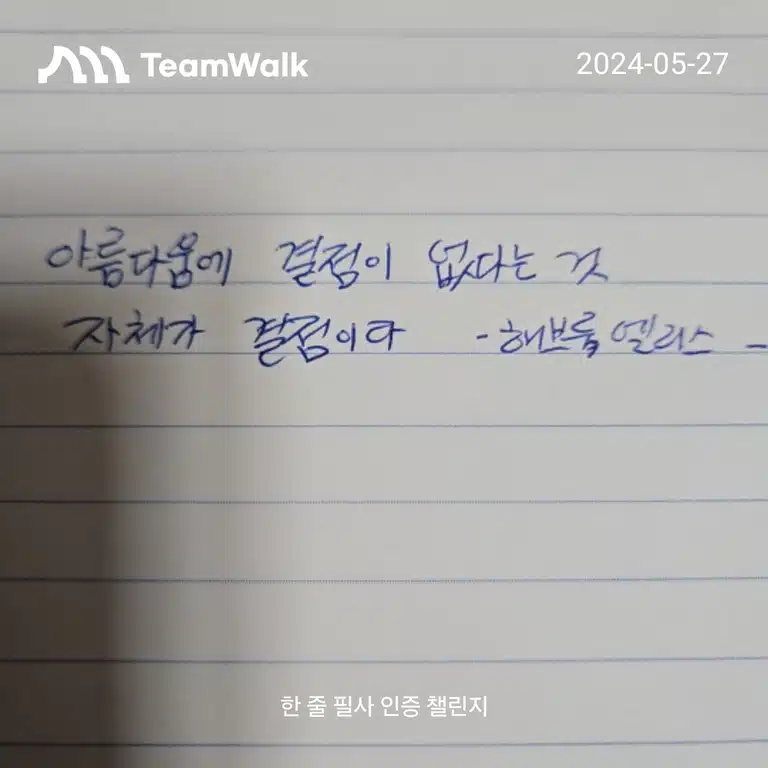 TeamWalk
2024-05-27
아름다움에 결점이 없다는 것
자체가 결점이다 - 해브룩 엘리스 -
한 줄 필사 인증 챌린지